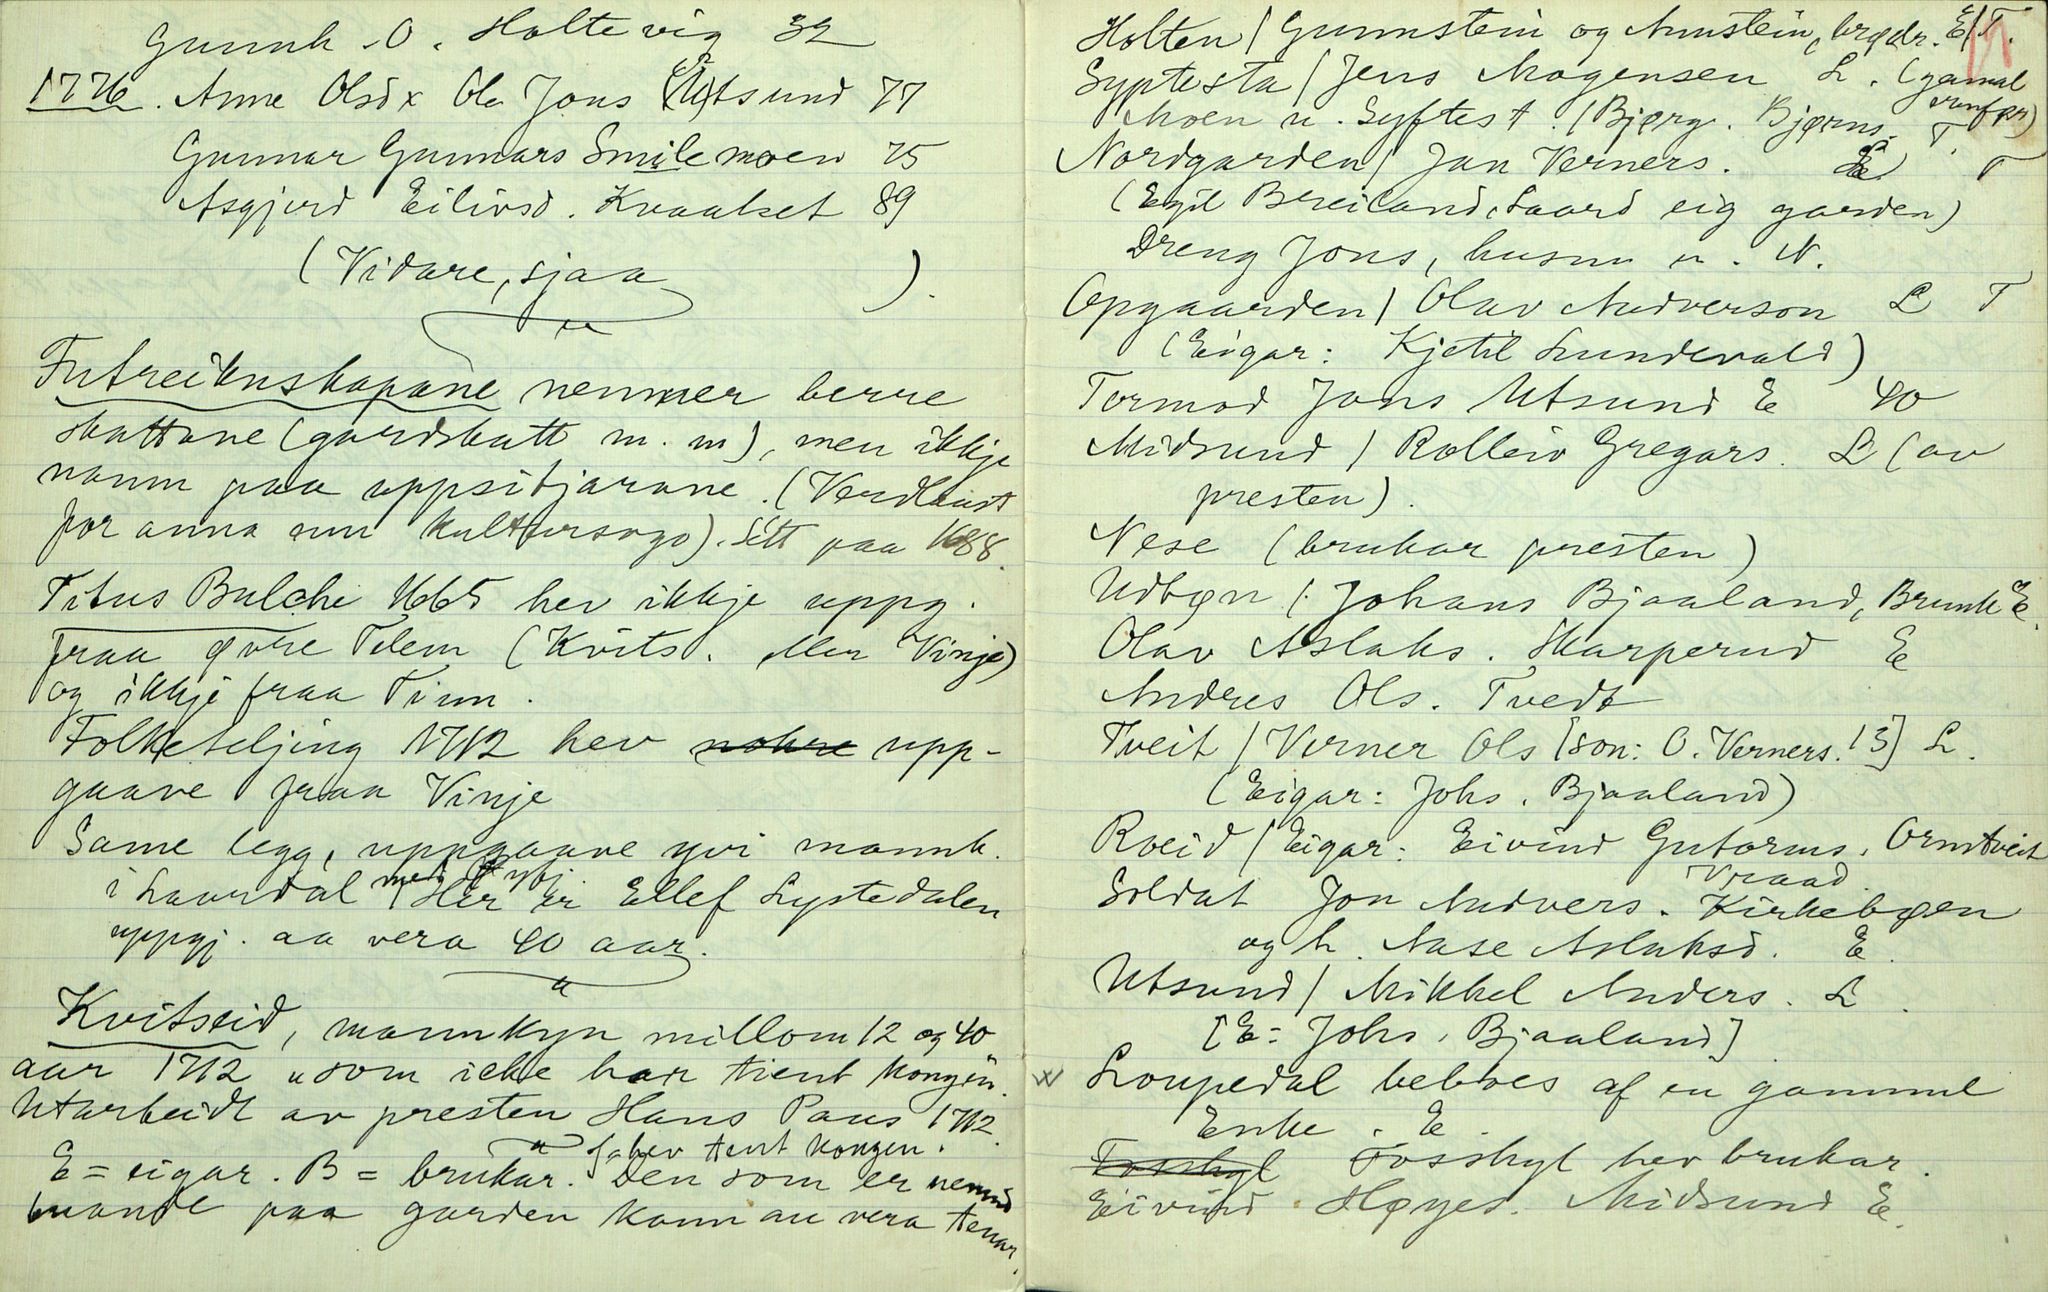 Gunnh. O. Holtevig 32
1776. Anne Olsd x Ola Jons Utsund 77
Gunnar Gunnars Smilemoen 75
Asgjerd Eilivsd. Kvaalset 89
(Vidare, sjaa ).
Futreikneskapane nemner berre
skattane (gardskatt m.m), men ikkje
namn paa uppsitjarane. (Verdlaust
for anna enn kultursogo). Sett paa 1688.
Titus Bulche 1665 hev ikkje uppg.
fraa øvre Telem (Kvits. eller Vinje)
og ikkje fraa Tinn.
Folketeljing 1712 hev nokre upp-
gaave fraa Vinje
Same legg, uppgaave yvi mannk.
i Laurdal Her er Ellef Lystedalen
uppgj. aa vera 40 aar.
Kvitseid, mannkyn millom 12 og 40
aar 1712 "som icke har tient kongen.
Utarbeidt av presten Hans Paus 1712.
T=hev tent kongen.
E = eigar. B = brukar. Den som er nemnd
buande paa garden kann au vera tenar.
Holten / Gunnstein og Aunstein, brødr. E/T.
Syptesta / Jens Mogensen L. (gamal
Moen u. Syftest. (Bjørg. Bjørns. T.
Nordgarden / Jan Verners. L T
(Egil Breiland, Laard eig garden)
Dreng Jons, husm u. N.
Opgaarden / Olav Audverson L T
(Eigar: Kjetil Lundevald)
Tormod Jons Utsund E 40
Midsund / Rolleiv Gregars. L (av
presten).
Nese (brukar presten)
Udbøn (: Johans Bjaaland, Brunk. E.
Olav Aslaks. Skarperud E
Andres Ols. Tvedt
Tveit / Verner Ols [son: O. Verners. 13] L.
(Eigar: Johs. Bjaaland)
Roeid / Eigar: Eivind Gutorms. Ormtveit
Vraad.
Soldat Jon Audvers. Kirkebøen
og h. Aase Aslaksd. E.
Utsund / Mikkel Anders. L.
[E= Johs. Bjaaland]
Loupedal beboes af en gammel
Enke. E.
Fosskyl Fosskyl hev brukar.
Eivind Høyes. Midsund E.